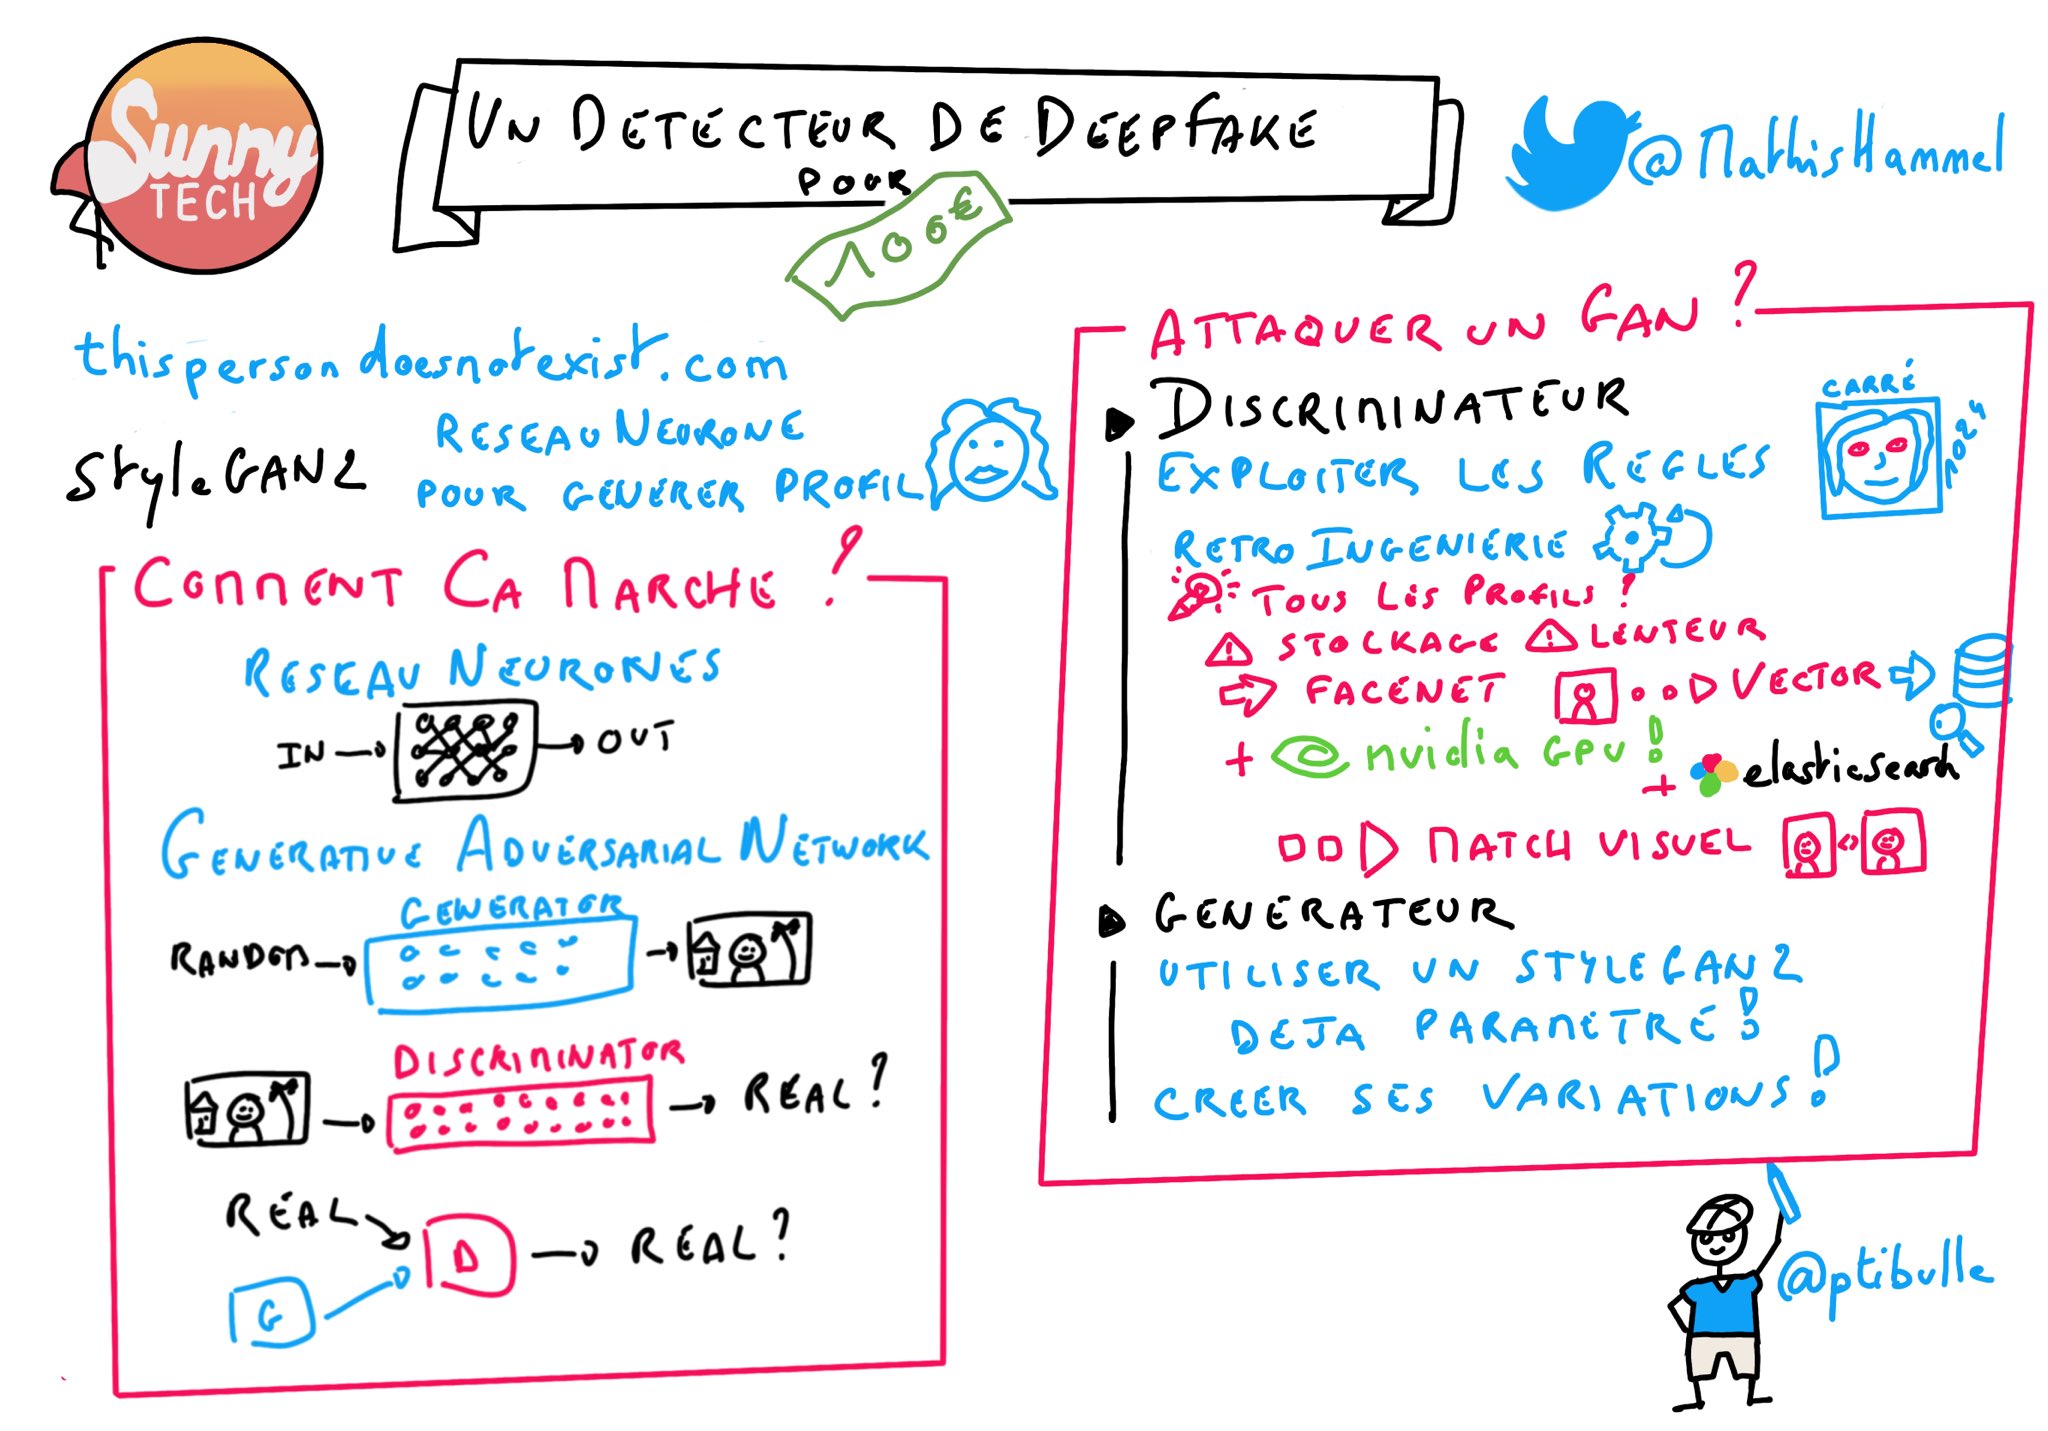 Sunny
TECH
UN DETECTEUR DE DEEPFAKE
POUR
100€
@MathisHammel
thispersondoesnotexist.com
StyleGAN2
RESEAU NEURONE
POUR GENERER PROFIL
COMMENT CA MARCHE ?
RESEAU NEURONES
IN
OUT
GENERATIVE ADVERSARIAL NETWORK
GENERATOR
RANDOM
DISCRIMINATOR
REAL ?
REAL
G
D
REAL ?
ATTAQUER UN GAN ?
DISCRIMINATEUR
CARRÉ
1024
EXPLOITER LES REGLES
RETRO INGENIERIE
TOUS LES PROFILS ?
STOCKAGE
LENTEUR
FACENET
VECTOR
+ nvidia GPU !
+ elasticsearch
MATCH VISUEL
GENERATEUR
UTILISER UN STYLEGAN2
DEJA PARAMETRÉ !
CREER SES VARIATIONS !
@ptibulle